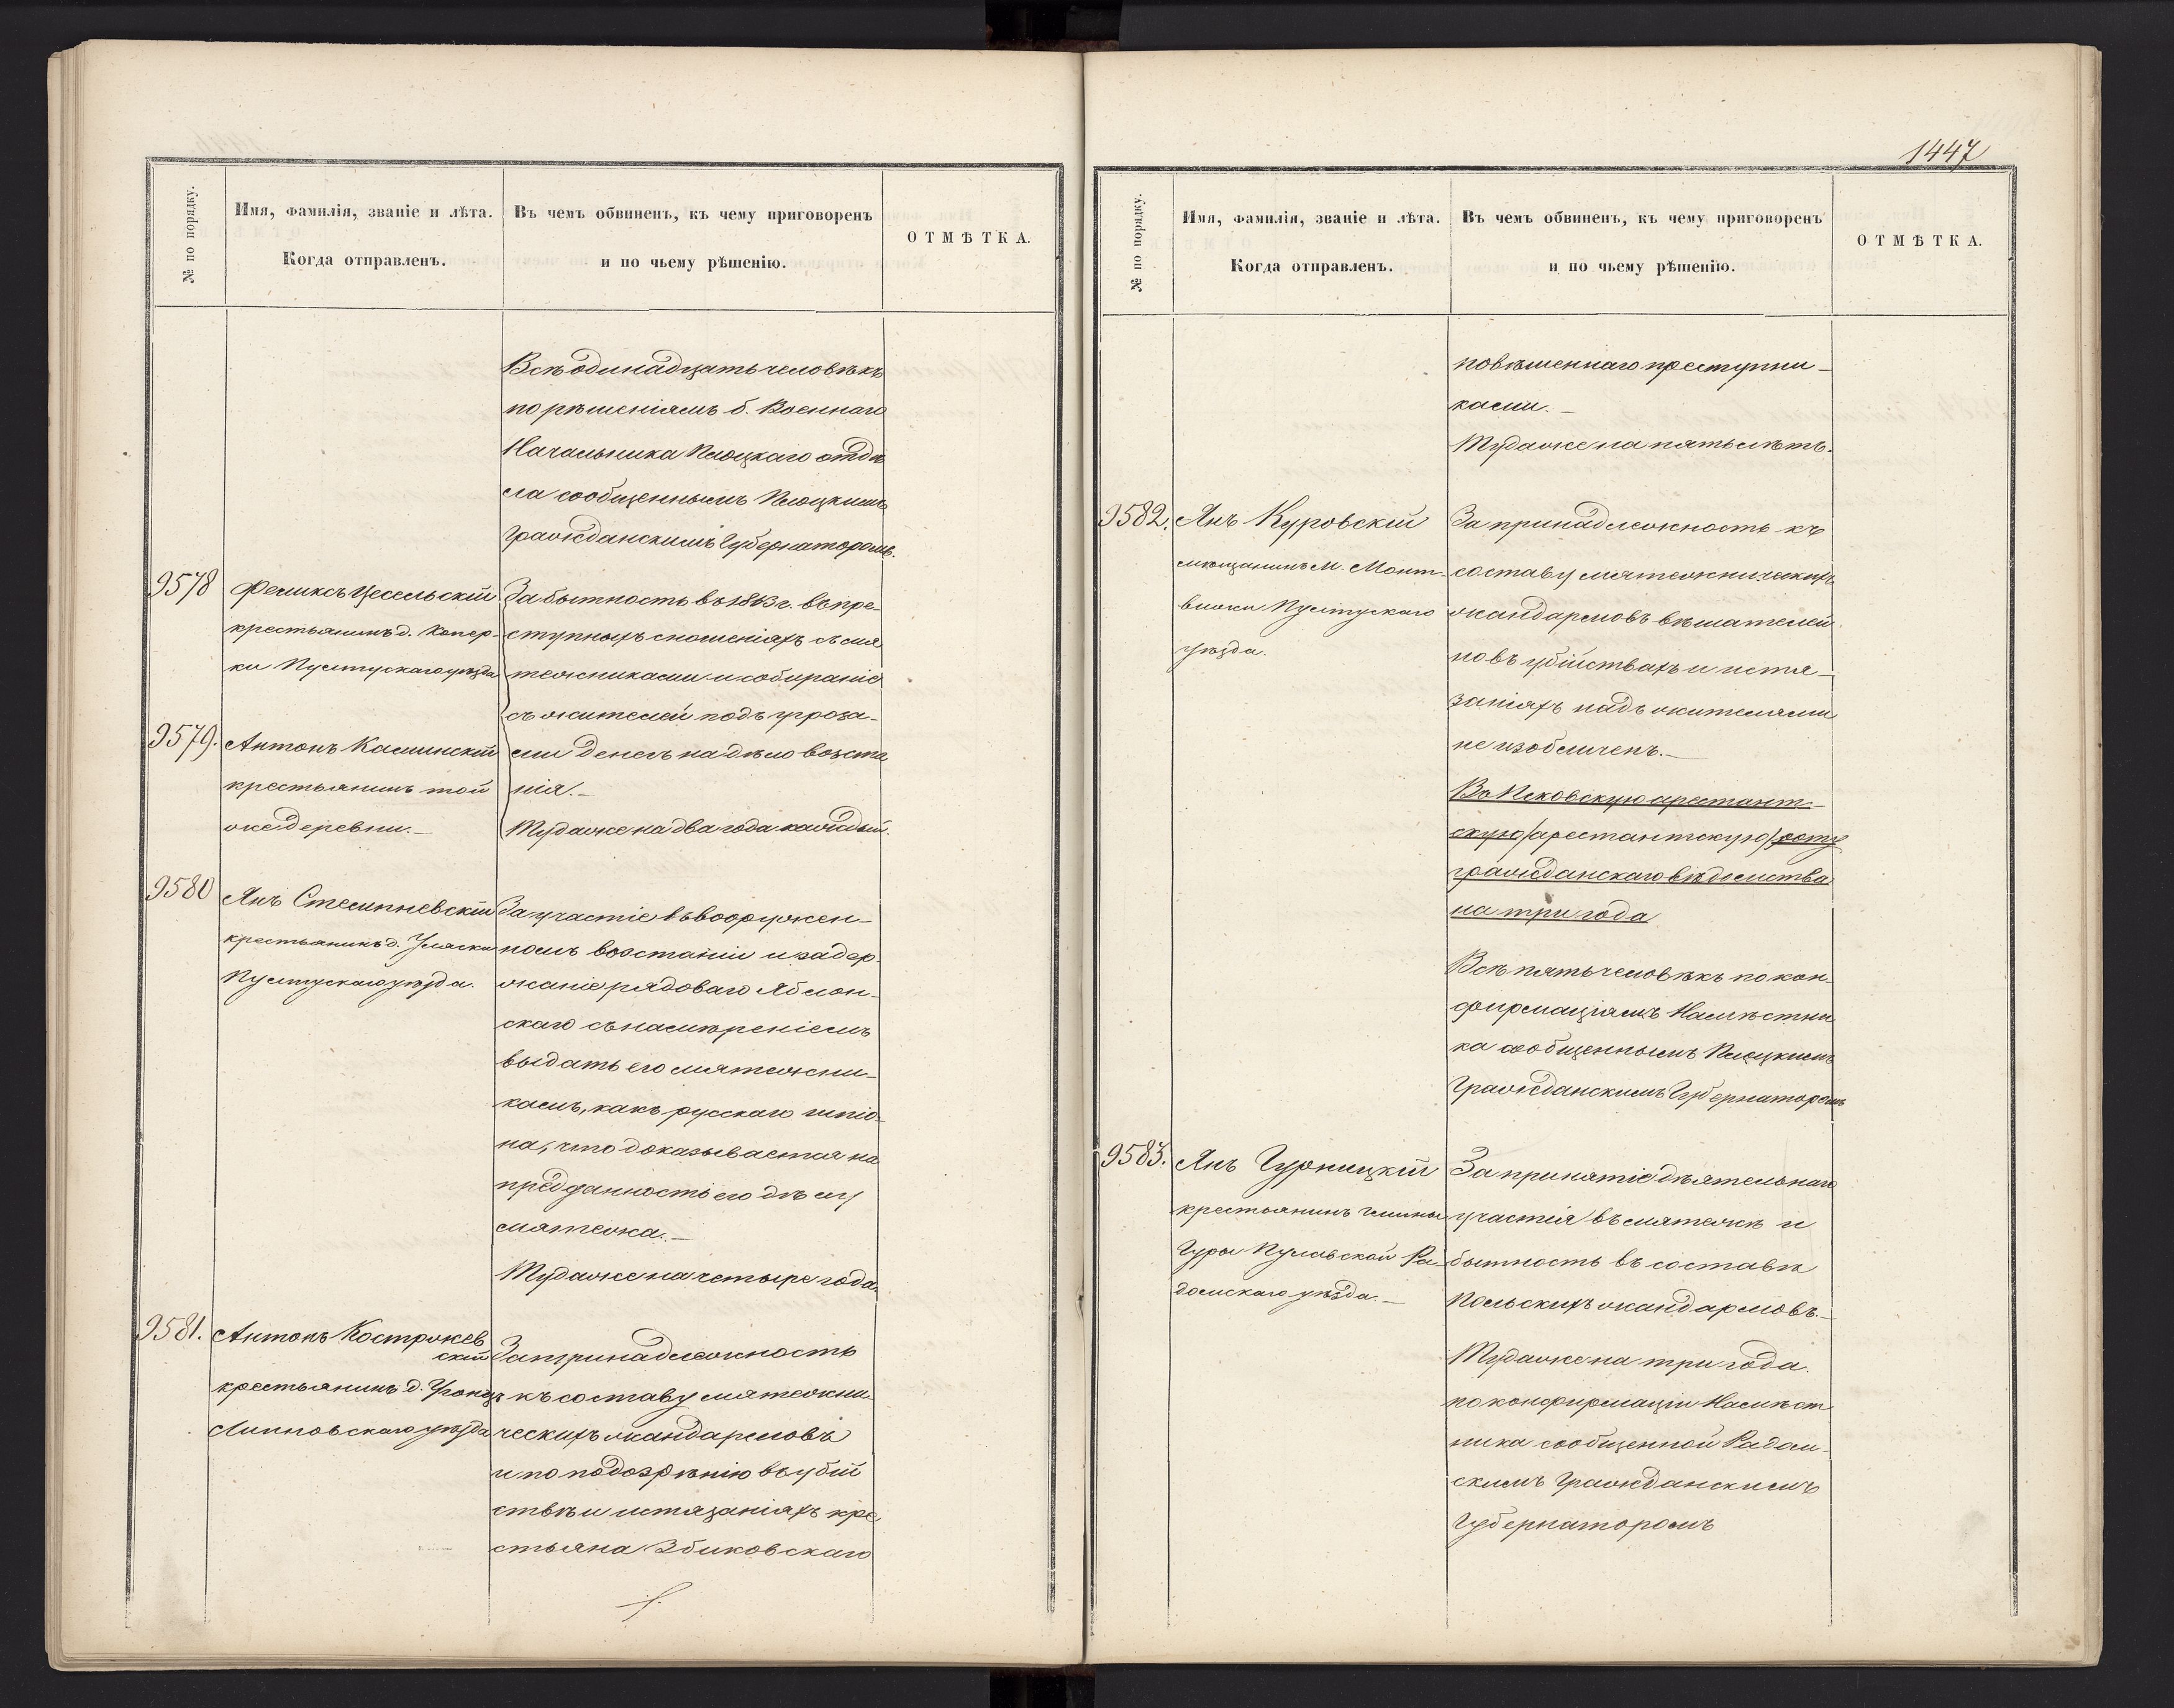 № по порядку.
Имя, фамилія, званіе и лѣта.
Когда отправленъ.
Въ чемъ обвиненъ, къ чему приговоренъ
и по чьему рѣшенію.
ОТМѢТКА.
Всѣ одинадцать человѣкъ
по рѣшеніямъ б. Военнаго
Начальника Плоцкаго отдѣ
ла сообщеннымъ Плоцкимъ
Гражданскимъ Губернаторомъ.
9578
Феликсъ Цесельскій
крестьянинъ д. Копер-
ки Пултускаго уѣзда
За бытность въ 1863 г. въ пре-
ступныхъ сношеніяхъ съ мя
тежниками и собираніе
съ жителей подъ угроза-
ми денегъ на дѣло возста
нія.—
Туда же на два года каждый.
9579.
Антонъ Каминскій
крестьянинъ той
же деревни.—
9580
Янъ Стемпневскій
крестьянинъ д. Уляски
Пултускаго уѣзда.
За участіе въ вооружен-
номъ возстаніи и задер-
жаніе рядоваго Яблон-
скаго съ намѣреніемъ
выдать его мятежни-
камъ, какъ русскаго шпіо-
на, что доказывается на
преданность его дѣлу
мятежа.—
Туда же на четыре года.
9581.
Антонъ Костржев
скій
крестьянинъ д. Гронд
Липновскаго уѣзда
За принадлежность
къ составу мятежни-
ческихъ жандармовъ
и по подозрѣнію въ убій
ствѣ и истязаніяхъ кре
стьяна Збиковскаго
1447
№ по порядку.
Имя, фамилія, званіе и лѣта.
Когда отправленъ.
Въ чемъ обвиненъ, къ чему приговоренъ
и по чьему рѣшенію.
ОТМѢТКА.
повѣшеннаго преступни-
ками.—
Туда же на пять лѣтъ.
9582.
Янъ Куровскій
мѣщанинъ м. Монт-
вижи Пултускаго
уѣзда.
За принадлежность къ
составу мятежническихъ
жандармовъ вѣшателей
но въ убійствахъ и истя-
заніяхъ надъ жителями
не изобличенъ.—
Во Псковскую арестант-
скую /арестантскую/ роту
гражданскаго вѣдомства
на три года
Всѣ пять человѣкъ по кон-
фирмаціямъ Намѣстни
ка сообщеннымъ Плоцкимъ
Гражданскимъ Губернаторомъ
9583.
Янъ Гурницкій
крестьянинъ гмины
Гуры Пулавской Ра-
домскаго уѣзда.—
За принятіе дѣятельнаго
участія въ мятежѣ и
бытность въ составѣ
Польскихъ жандармовъ.—
Туда же на три года.
по конфирмаціи Намѣст
ника сообщенной Радом-
скимъ Гражданскимъ
Губернаторомъ